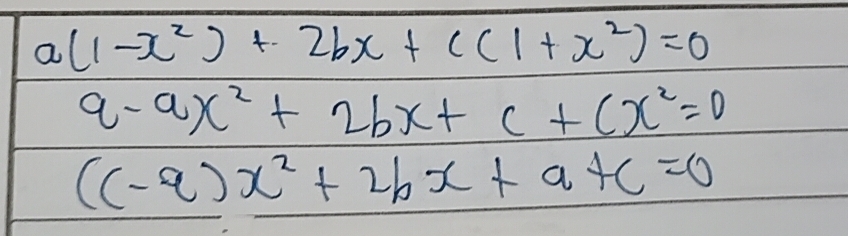 a(1-x²) + 2bx + c(1+x²)=0
a-ax² + 2bx + c + cx²=0
(c-a)x² + 2bx + a+c=0